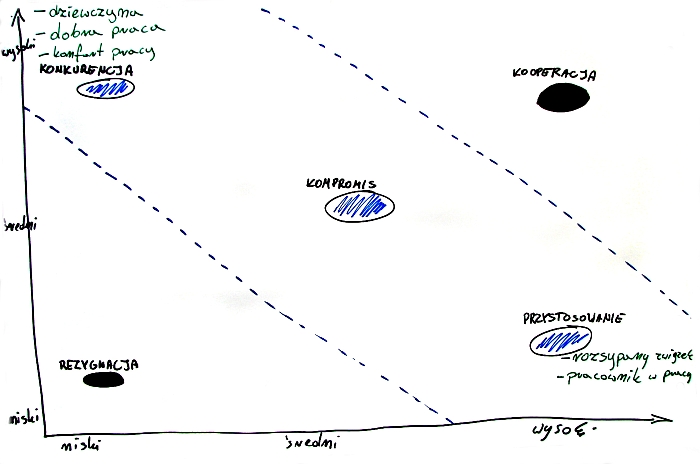 - dziewczyna
- dobra praca
- komfort pracy
wysoki
KONKURENCJA
KOOPERACJA
KOMPROMIS
średni
PRZYSTOSOWANIE
- rozsypany związek
- pracownik w pracy
REZYGNACJA
niski
niski
średni
wysok.